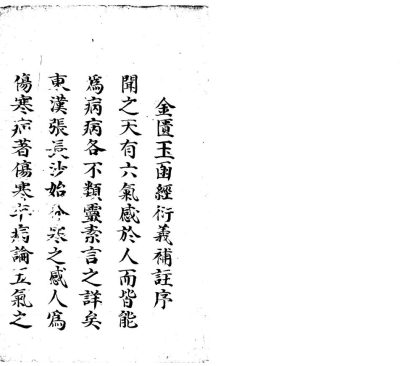 金匱玉函經衍義補註序
聞之天有六氣感於人而皆能
爲病病各不類靈素言之詳矣
東漢張長沙始分寒之感人爲
傷寒病著傷寒卒病論五氣之